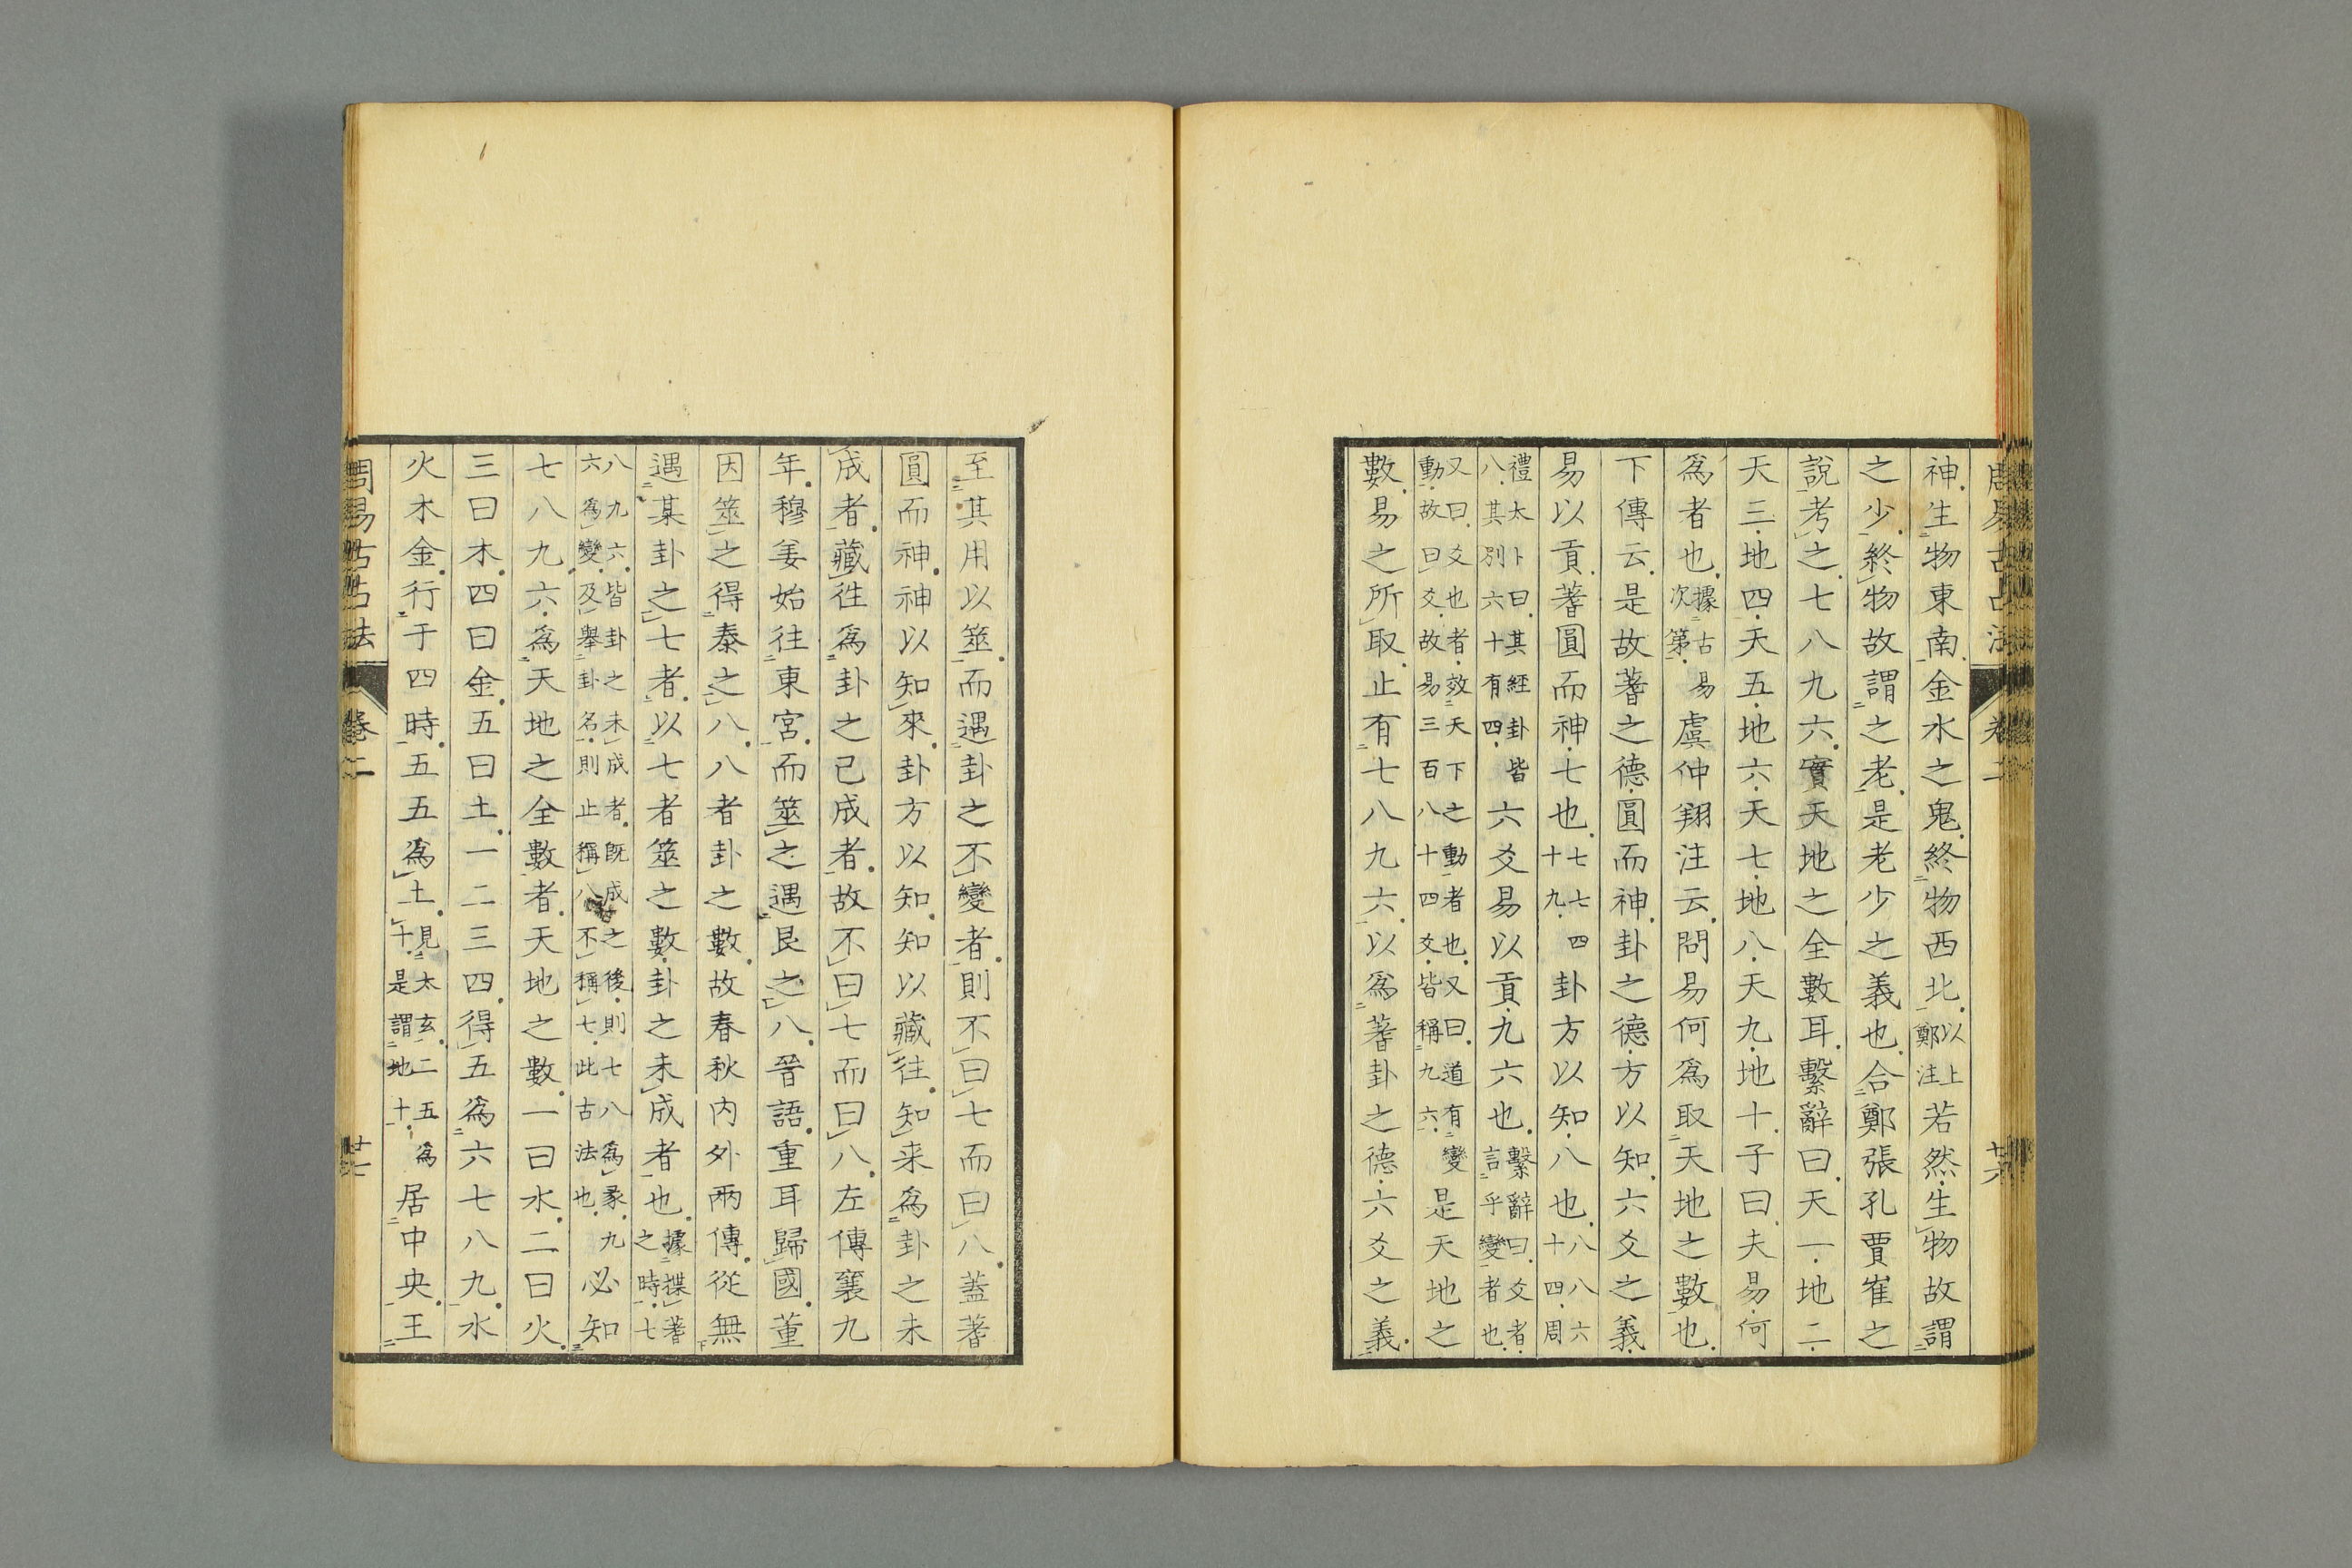 周易古占法 卷二 十六
神生物東南金水之鬼終物西北以上鄭注若然生物故謂
之少終物故謂之老是老少之義也合鄭張孔賈崔之
說考之七八九六實天地之全數耳繫辭曰天一地二
天三地四天五地六天七地八天九地十子曰夫易何
爲者也據古易次第虞仲翔注云問易何爲取天地之數也
下傳云是故蓍之德圓而神卦之德方以知六爻之義
易以貢蓍圓而神七也七七四十九卦方以知八也八八六十四周
禮太卜曰其經卦皆八其別六十有四六爻易以貢九六也繫辭曰爻者言乎變者也
又曰爻也者效天下之動者也又曰道有變動故曰爻故易三百八十四爻皆稱九六是天地之
數易之所取止有七八九六以爲蓍卦之德六爻之義
至其用以筮而遇卦之不變者則不曰七而曰八蓋蓍
圓而神神以知來卦方以知知以藏往知来爲卦之未
成者藏往爲卦之已成者故不曰七而曰八左傳襄九
年穆姜始往東宮而筮之遇艮之八晉語重耳歸國董
因筮之得泰之八八者卦之數故春秋内外兩傳從無
遇某卦之七者以七者筮之數卦之未成者也據揲蓍之時七
八九六皆卦之未成者既成之後則七八爲彖九六爲變及舉卦名則止稱八不稱七此古法也必知
七八九六爲天地之全數者天地之數一曰水二曰火
三曰木四曰金五曰土一二三四得五爲六七八九水
火木金行于四時五五爲土見太玄二五爲十是謂地十居中央王
周易古占法 卷二 十七